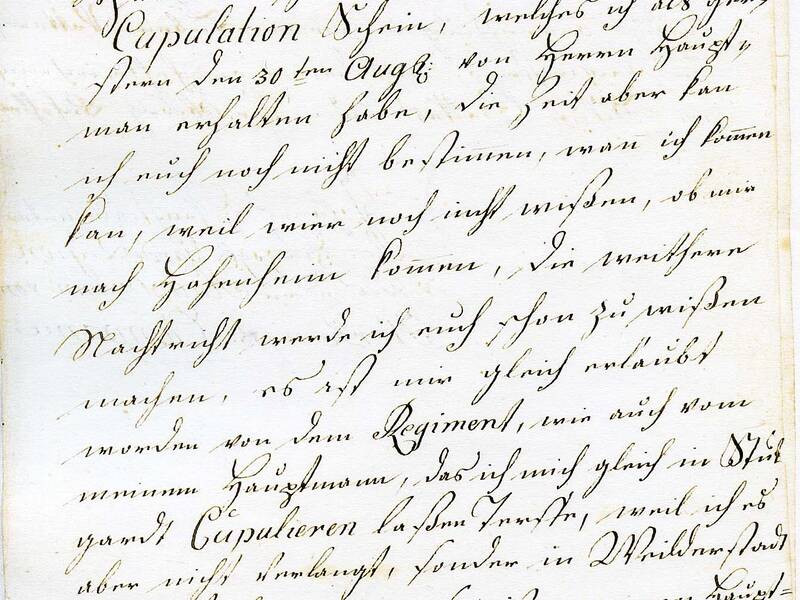 Cupulation Schein, welches ich als gest
stern den 30ten Augst: von Herrn Haupt=
man erhalten habe, die Zeit aber kan
ich euch noch nicht bestimmen, wan ich kommen
kan, weil wier noch nicht wißen, ob mir
nach Hohenheim kommen, die weithere
Nachtricht werde ich euch schon zu wißen
machen, es ist mir gleich erlaubt
worden von dem Regiment, wie auch vom
meinem Hauptmann, das ich mich gleich in Stut
gardt Cupulieren laßen Terffe, weil ich es
aber nicht verlangt, sonder in Weilderstadt
Haupt=